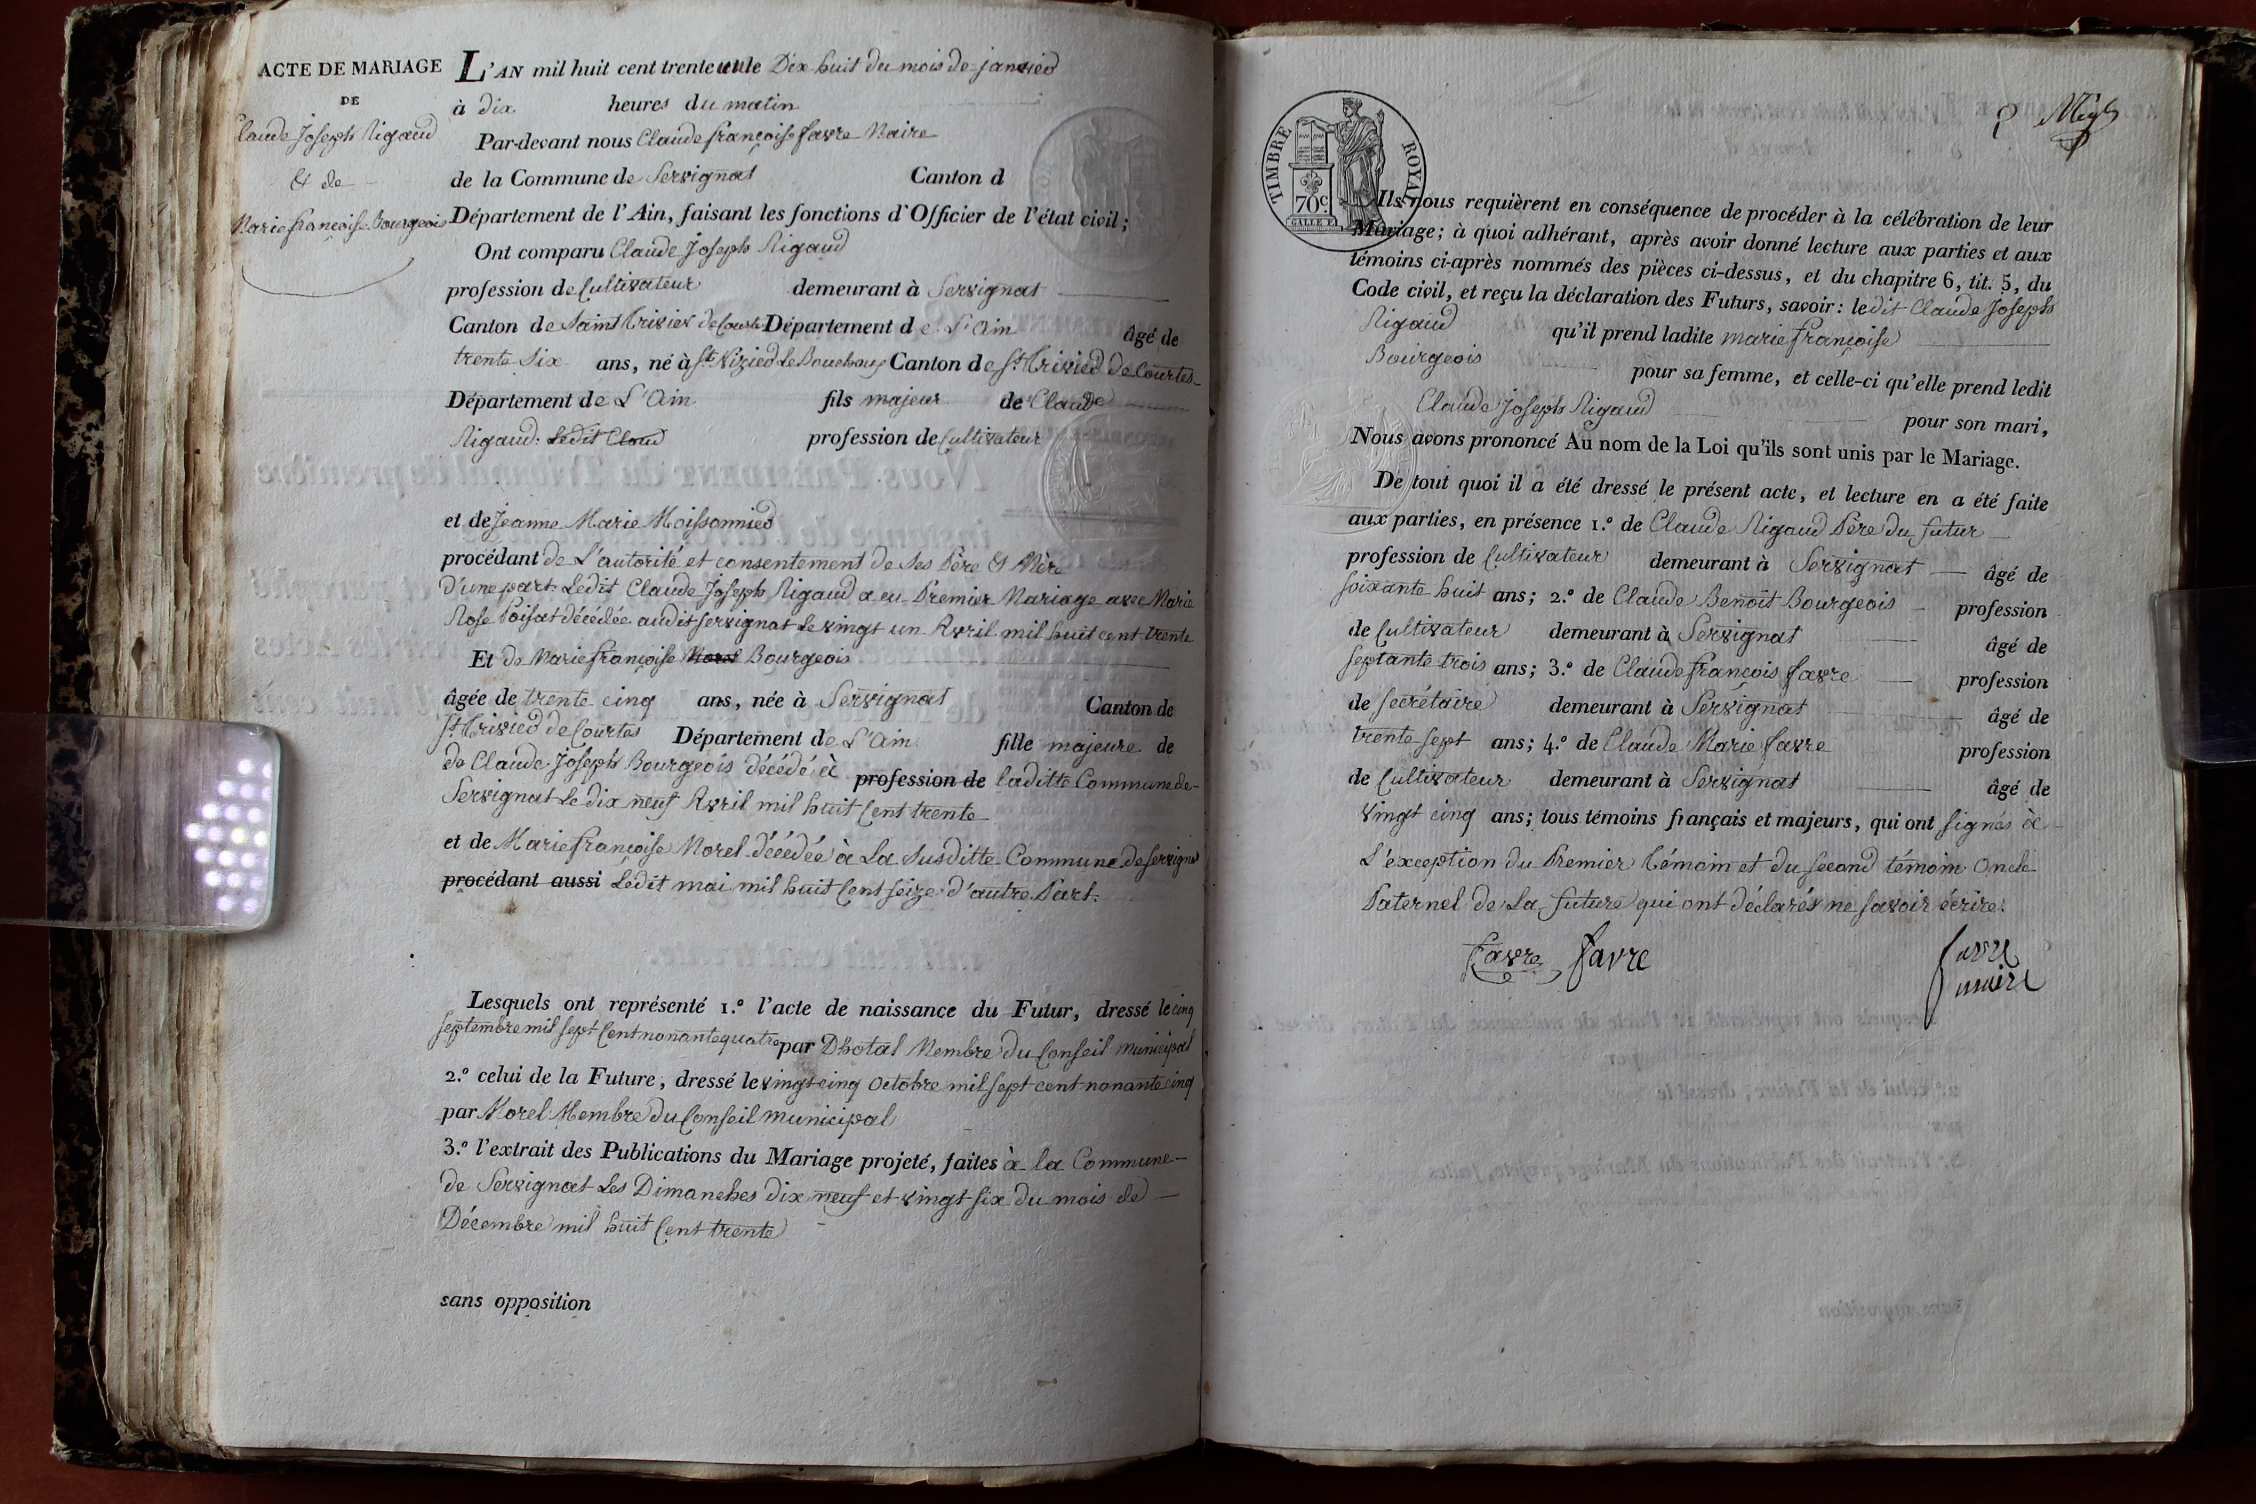 ACTE DE MARIAGE
DE
Claude Joseph Rigaud
Et de
Marie françoise Bourgeois
L'AN mil huit cent trente un le Dix huit du mois de janvier
à dix heures du matin
Par-devant nous Claude françois favre Maire
de la Commune de Servignat Canton d
Département de l'Ain, faisant les fonctions d'Officier de l'état civil;
Ont comparu Claude Joseph Rigaud
profession de Cultivateur demeurant à Servignat
Canton de Saint Trivier de Courtes Département de L'Ain âgé de
trente Six ans, né à St. Nizier Le Bouchoux Canton de St. Trivier de Courtes
Département de L'Ain fils majeur de Claude
Rigaud: Ledit Claud profession de Cultivateur
et de Jeanne Marie Moissonnier
procédant de L'autorité et consentement de Ses Père Et Mère
D'une part. Ledit Claude Joseph Rigaud a eu Premier Mariage avec Marie
Rose Poisat décédée audit Servignat Le vingt un Avril mil huit cent trente
Et de Marie françoise Morel Bourgeois
âgée de trente cinq ans, née à Servignat Canton de
St. Trivier de Courtes Département de L'Ain fille majeure de
de Claude Joseph Bourgeois décédé à profession de laditte Commune de
Servignat Le dix neuf Avril mil huit Cent trente
et de Marie françoise Morel décédée à La Susditte Commune de Servignat
procédant aussi Ledit mai mil huit Cent Seize d'autre Part.
Lesquels ont représenté 1.º l'acte de naissance du Futur, dressé le cinq
Septembre mil Sept Cent nonante quatre par Dhotal Membre du Conseil municipal
2.º celui de la Future, dressé le vingt cinq Octobre mil Sept cent nonante cinq
par Morel Membre du Conseil municipal
3.º l'extrait des Publications du Mariage projeté, faites à la Commune
de Servignat Les Dimanches dix neuf et vingt Six du mois de
Décembre mil huit Cent trente
sans opposition
TIMBRE ROYAL
70c
Ils nous requièrent en conséquence de procéder à la célébration de leur
Mariage; à quoi adhérant, après avoir donné lecture aux parties et aux
témoins ci-après nommés des pièces ci-dessus, et du chapitre 6, tit. 5, du
Code civil, et reçu la déclaration des Futurs, savoir: ledit Claude Joseph
Rigaud qu'il prend ladite marie françoise
Bourgeois pour sa femme, et celle-ci qu'elle prend ledit
Claude Joseph Rigaud pour son mari,
Nous avons prononcé Au nom de la Loi qu'ils sont unis par le Mariage.
De tout quoi il a été dressé le présent acte, et lecture en a été faite
aux parties, en présence 1.º de Claude Rigaud Père du futur
profession de Cultivateur demeurant à Servignat âgé de
soixante huit ans; 2.º de Claude Benoit Bourgeois profession
de Cultivateur demeurant à Servignat âgé de
septante trois ans; 3.º de Claude françois favre profession
de Secrétaire demeurant à Servignat âgé de
trente sept ans; 4.º de Claude Marie favre profession
de Cultivateur demeurant à Servignat âgé de
vingt cinq ans; tous témoins français et majeurs, qui ont signés à
L'exception du Premier témoin et du Second témoin Oncle
Paternel de La future qui ont déclarés ne savoir écrire.
Favre favre favre
maire